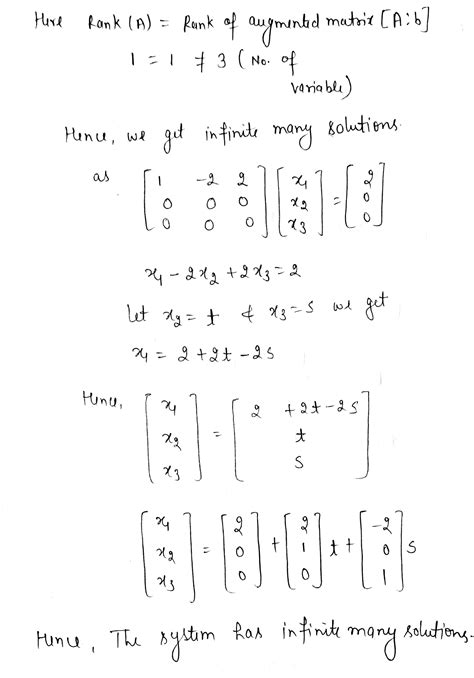 Here Rank (A) = Rank of augmented matrix [A:b]
1 = 1 ≠ 3 (No. of
variable)
Hence, we get infinite many solutions.
as [1 -2 2; 0 0 0; 0 0 0] [x1; x2; x3] = [2; 0; 0]
x1 - 2x2 + 2x3 = 2
Let x2 = t & x3 = s we get
x1 = 2 + 2t - 2s
Hence, [x1; x2; x3] = [2 + 2t - 2s; t; s]
[x1; x2; x3] = [2; 0; 0] + [2; 1; 0] t + [-2; 0; 1] s
Hence, The system has infinite many solutions.